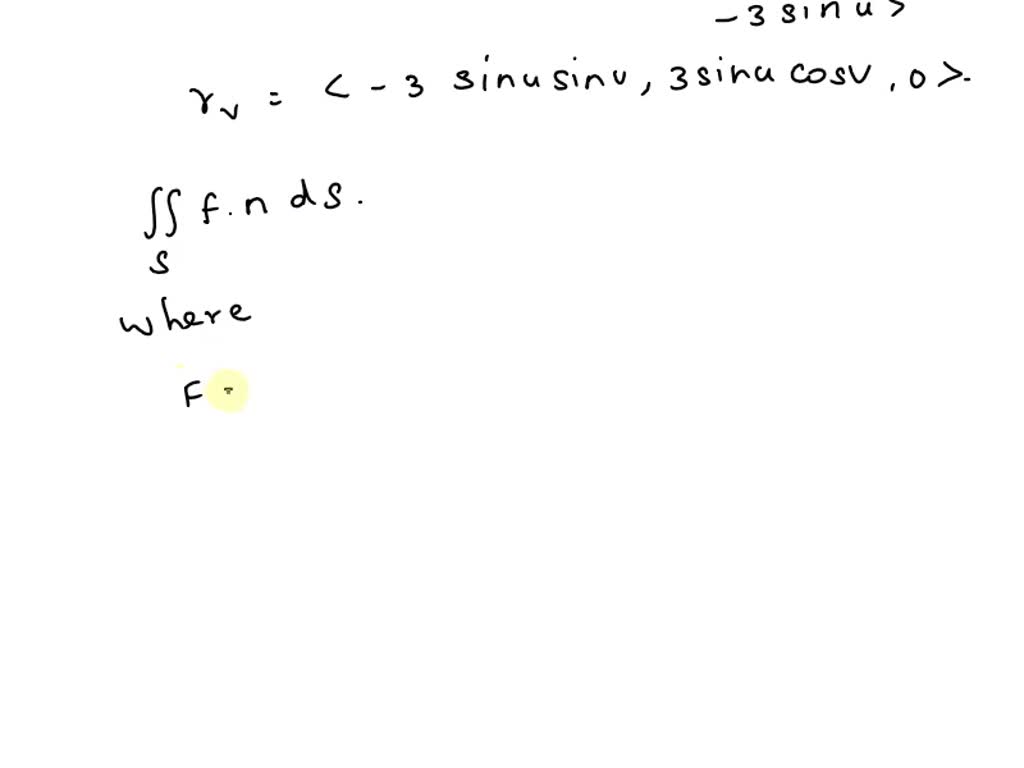 - 3 sin u >
r_v = < - 3 sin u sin v , 3 sin u cos v , 0 >.
∬ f . n ds .
S
where
F =